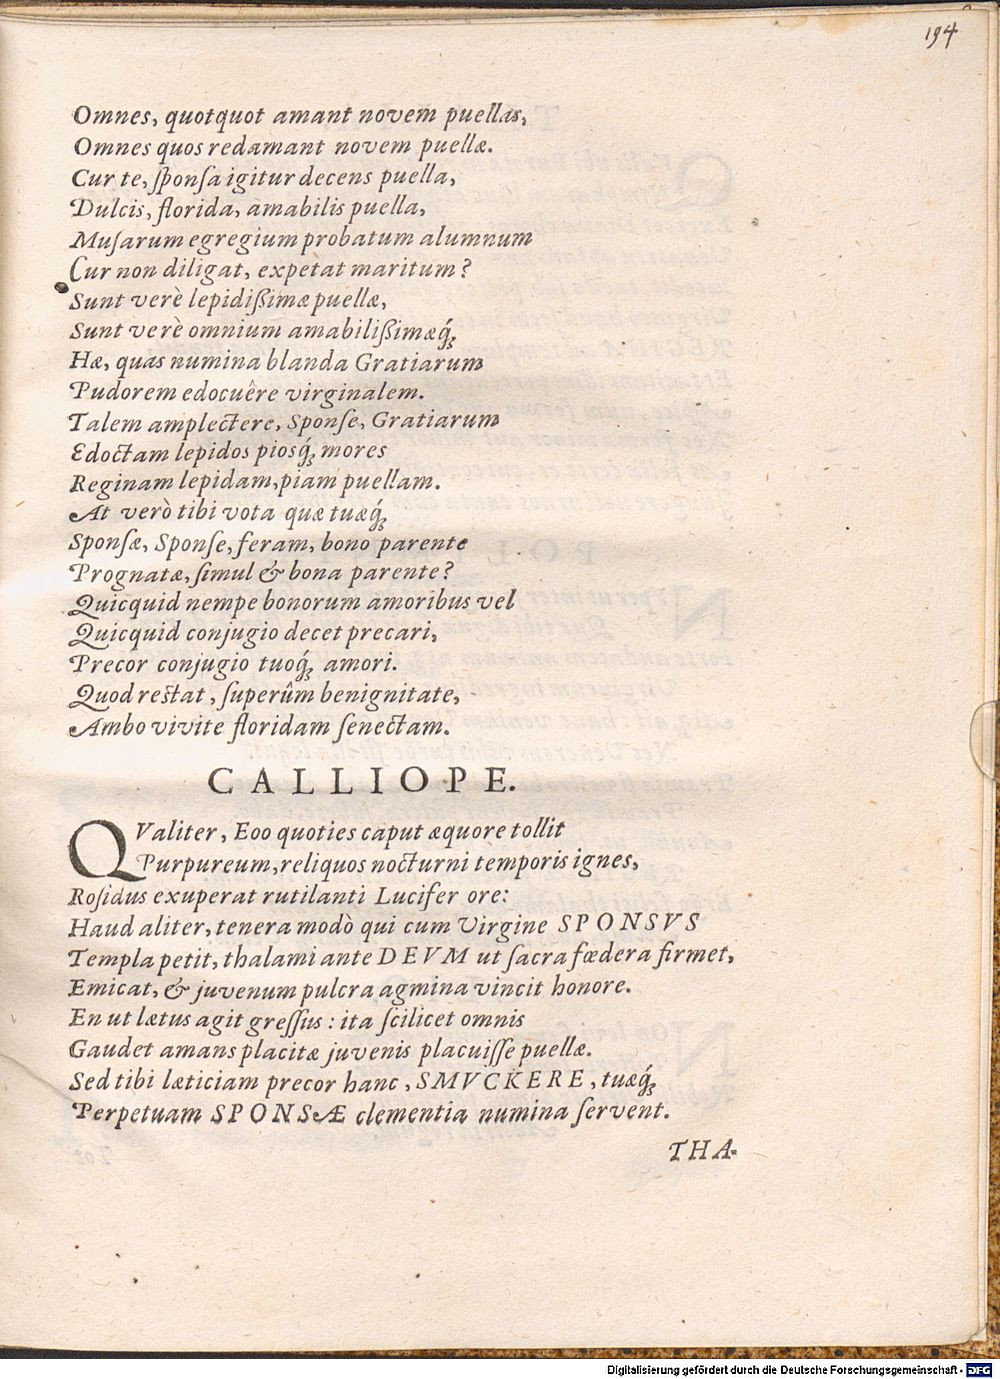 194
Omnes, quotquot amant novem puellas,
Omnes quos redamant novem puellæ.
Cur te, ſponſa igitur decens puella,
Dulcis, florida, amabilis puella,
Muſarum egregium probatum alumnum
Cur non diligat, expetat maritum?
Sunt verè lepidißimæ puellæ,
Sunt verè omnium amabilißimæq́;
Hæ, quas numina blanda Gratiarum
Pudorem edocuêre virginalem.
Talem amplectere, Sponſe, Gratiarum
Edoctam lepidos piosq́; mores
Reginam lepidam, piam puellam.
At verò tibi vota quæ tuæq́;
Sponſæ, Sponſe, feram, bono parente
Prognatæ, ſimul & bona parente?
Quicquid nempe bonorum amoribus vel
Quicquid conjugio decet precari,
Precor conjugio tuoq́; amori.
Quod reſtat, ſuperûm benignitate,
Ambo vivite floridam ſenectam.
CALLIOPE.
QValiter, Eoo quoties caput æquore tollit
Purpureum, reliquos nocturni temporis ignes,
Roſidus exuperat rutilanti Lucifer ore:
Haud aliter, tenera modò qui cum Virgine SPONSVS
Templa petit, thalami ante DEVM ut ſacra fœdera firmet,
Emicat, & juvenum pulcra agmina vincit honore.
En ut lætus agit greſſus: ita ſcilicet omnis
Gaudet amans placitæ juvenis placuiſſe puellæ.
Sed tibi læticiam precor hanc, SMVCKERE, tuæq́;
Perpetuam SPONSÆ clementia numina ſervent.
THA-
Digitalisierung gefördert durch die Deutsche Forschungsgemeinschaft - DFG